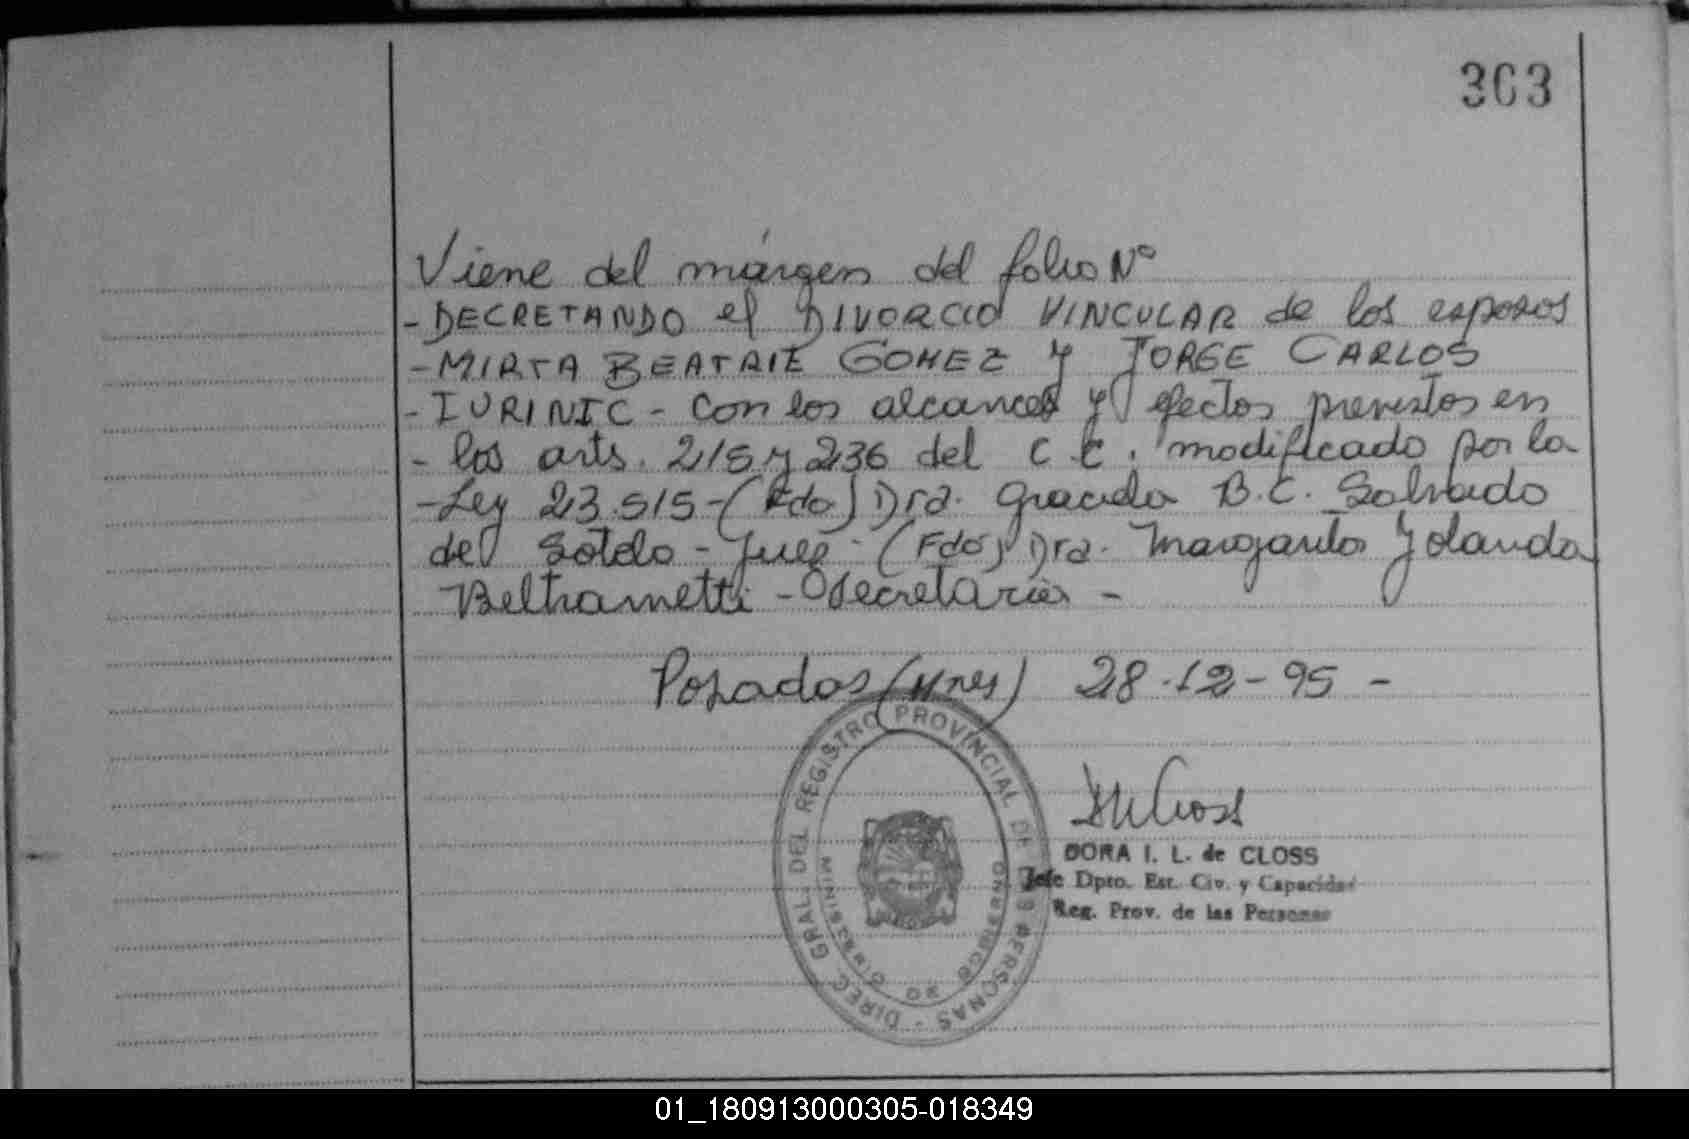 303
Viene del márgen del folio Nº
- DECRETANDO el DIVORCIO VINCULAR de los esposos
- MIRTA BEATRIZ GOMEZ y JORGE CARLOS
- IURINIC - Con los alcances y efectos previstos en
- los arts. 215 y 236 del C.C. modificado por la
- Ley 23.515 - (Fdo) Dra. Graciela B.C. Salvado
de Sotelo - Juez - (Fdo) Dra. Margarita Yolanda
Beltrametti - Secretaria -
Posadas (Mnes) 28-12-95 -
DIREC. GRAL. DEL REGISTRO PROVINCIAL DE LAS PERSONAS -
MINISTERIO DE GOBIERNO
DORA I. L. de CLOSS
Jefe Dpto. Est. Civ. y Capacidad
Reg. Prov. de las Personas
01_180913000305-018349